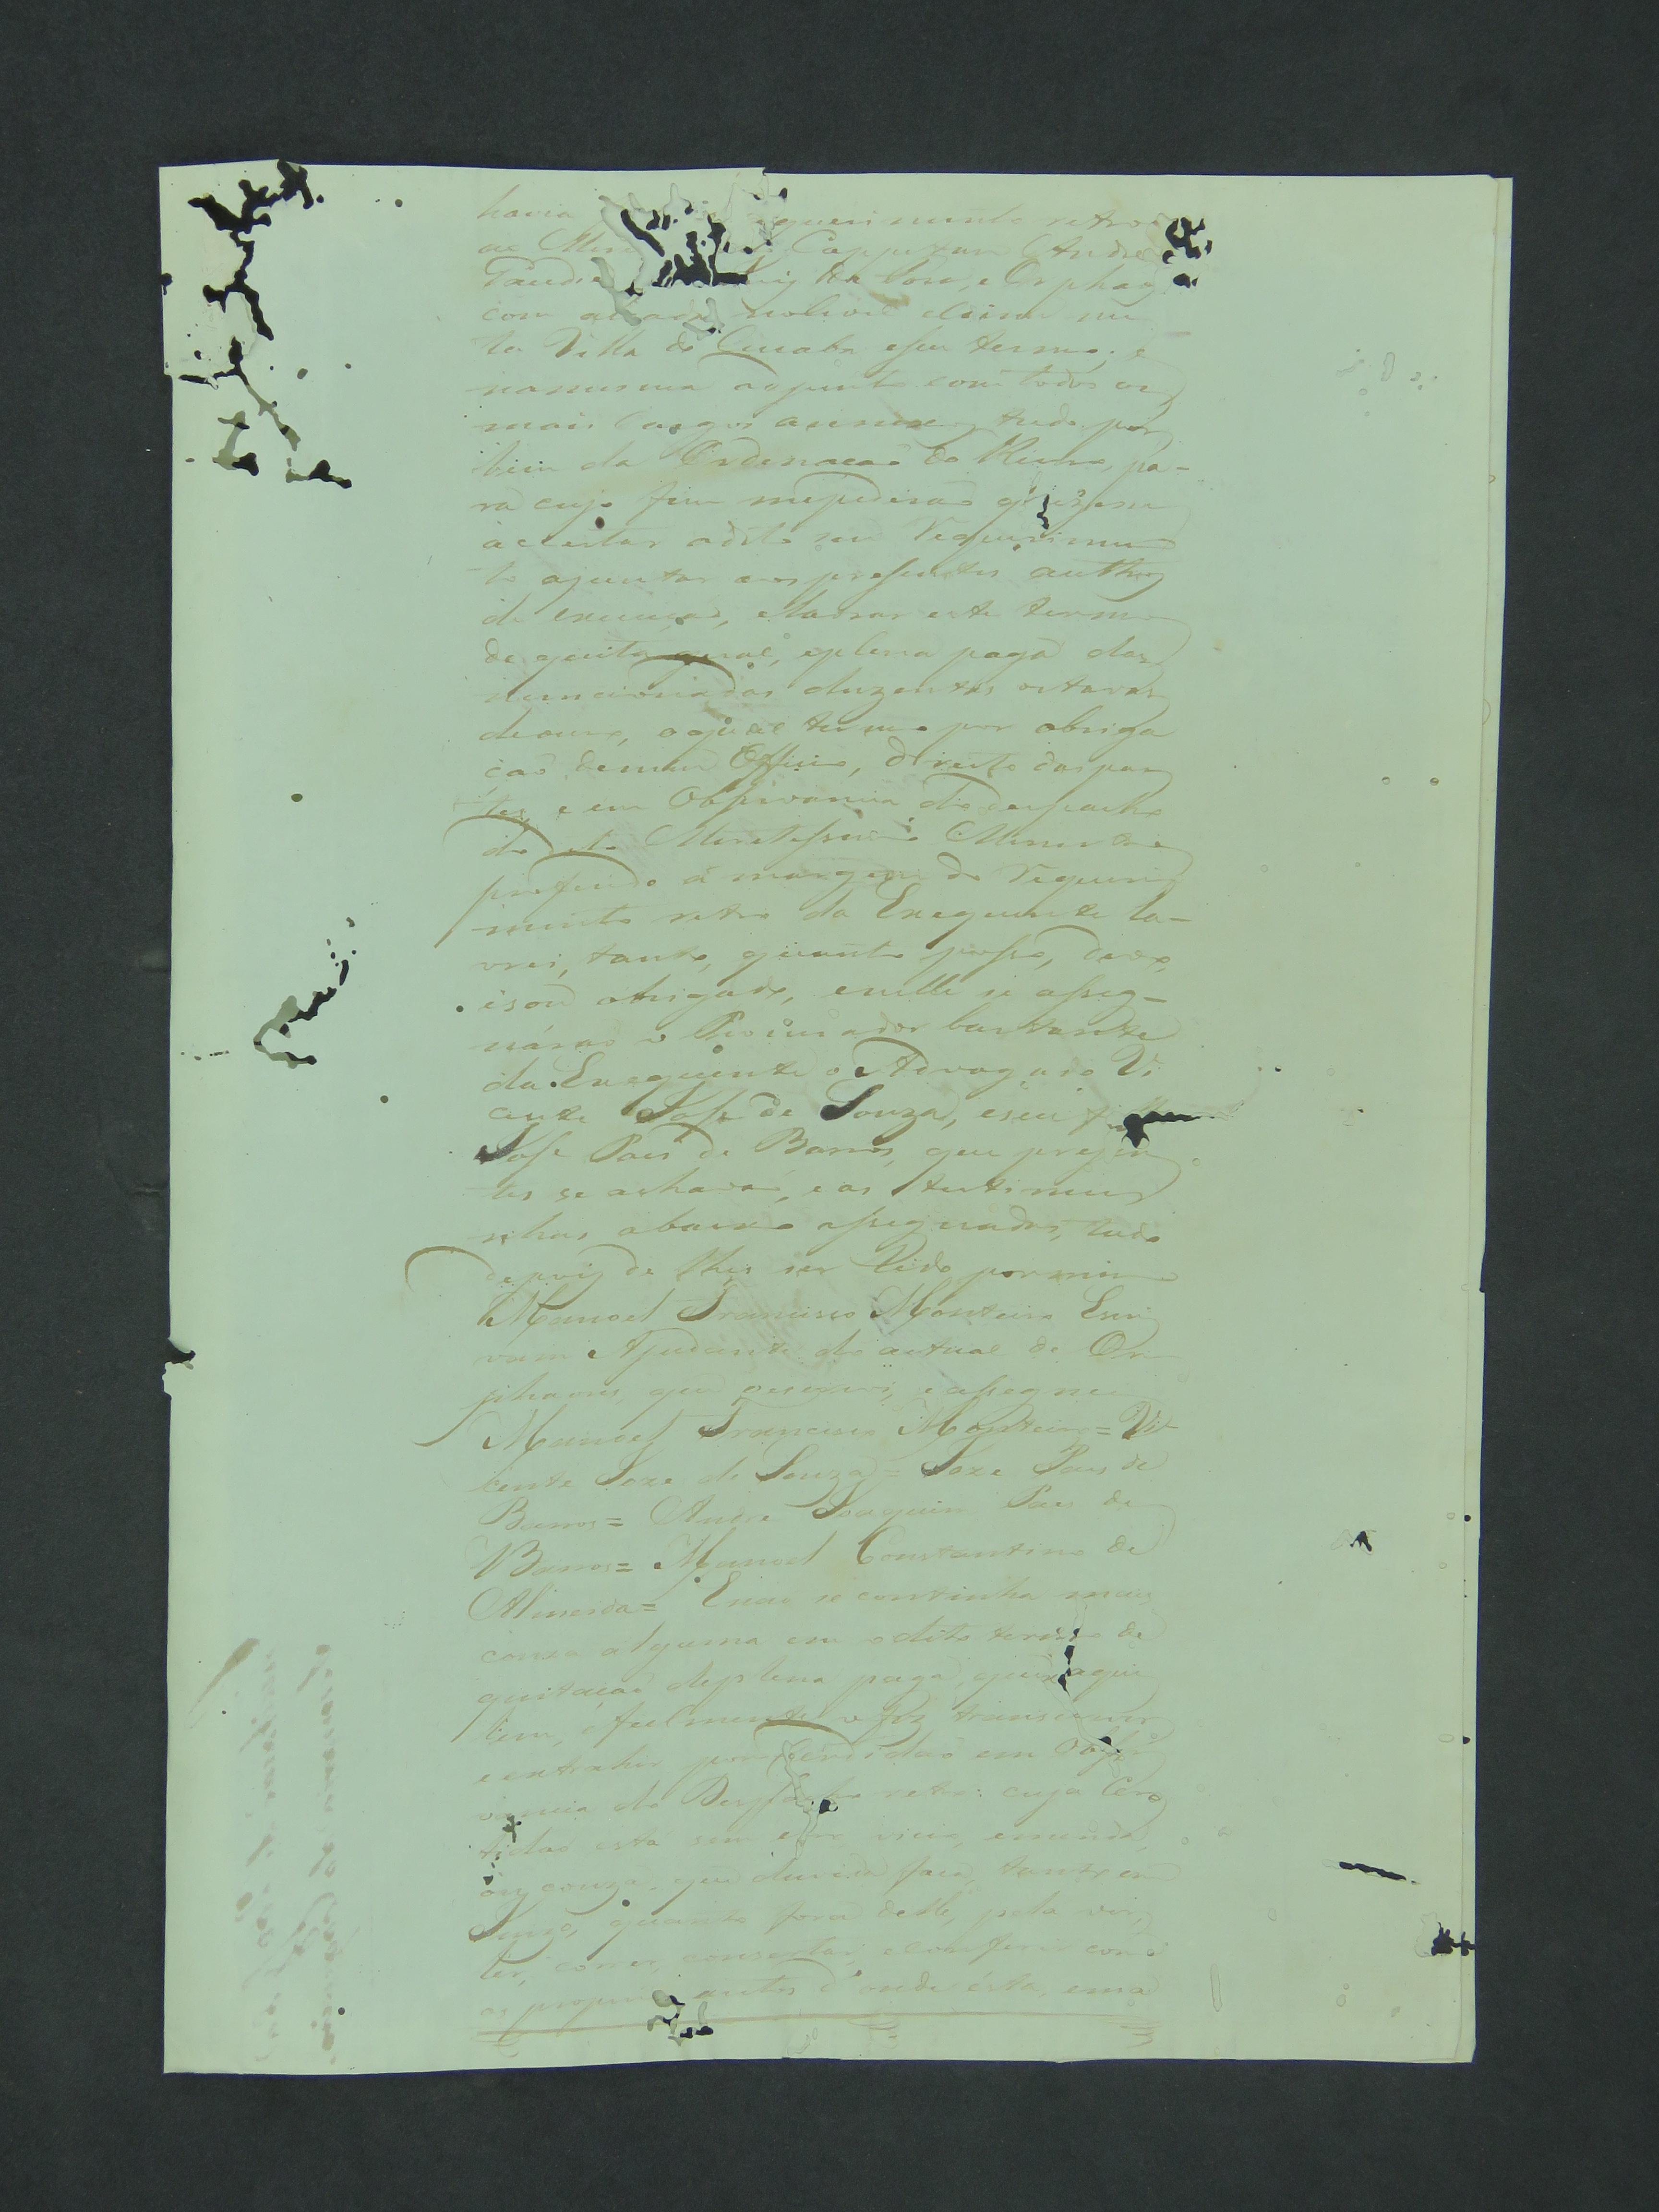 havia querimento retro
ao Cappitam Andre
Juiz de fora, e Orphaõs
com
ta Villa do Cuiaba eseu termo; e
namesma adjunto com todos os
mais Cargos annexos tudo por
bem da Ordenacaõ do Reino, pa-
ra cujo fim mepediraõ
aceitar odito seu Requerimen
to ajuntar aos prefentes authos
de execuçaõ, elavrar este termo
de quitaçaõ geral, eplena paga das
mencionadas duzentas oitavas
deouro, oqual termo por obriga
çaõ demeu Officio, direito das par
tes, e em Obfervancia do despacho
do dito Meretifsimo Menistro
proferido á margem do Requeri
mento retro da Exequente la-
vrei, tanto, quanto pofso, devo,
esou obrigado, enelle se afseg-
náraõ o Procurador bastante
da Exequente o Advogado Vi
cente Jofe de Souza, eseu
Jofe Paes de Barros, que prezen
tes se achavaõ, e as testemu
nhas abaixo afsegnadas, tudo
depois de lhes ser lido pormim
Manoel Francisco Monteiro Escri
vam Ajudante do actual de Or
phaons, que oescrevi, eafsegnei
Manoel Francisco Monteiro = Vi-
cente Joze de Souza = Joze Paes de
Barros = Andre Joaquim Paes de
Barros = Manoel Constantino de
Almeida = Enaõ se continha mais
couza alguma em odito termo de
quitaçaõ deplena paga, que aqui
bem, e fielmente o fiz transcrever
e extrahir por Certidaõ em Obfer
vancia do Despacho retro: cuja Cer
tidaõ esta sem erro, vicio, emenda,
ou couza, que duvida faça, tanto em
Juizo, quanto fora delle, pela ver,
ler, correr, consertar, e conferir com
os proprios autos d'onde ésta, ema